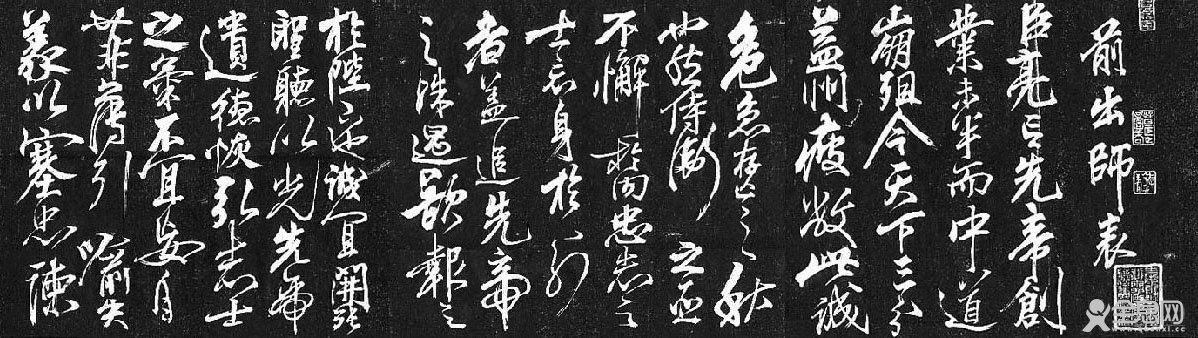 前出師表
臣亮言先帝創
業未半而中道
崩殂今天下三分
益州疲敝此誠
危急存亡之秋
也然侍衛之臣
不懈於內忠志之
士忘身於外
者蓋追先帝
之殊遇欲報之
於陛下也誠宜開張
聖聽以光先帝
遺德恢弘志士
之氣不宜妄自
菲薄引喻失
義以塞忠諫